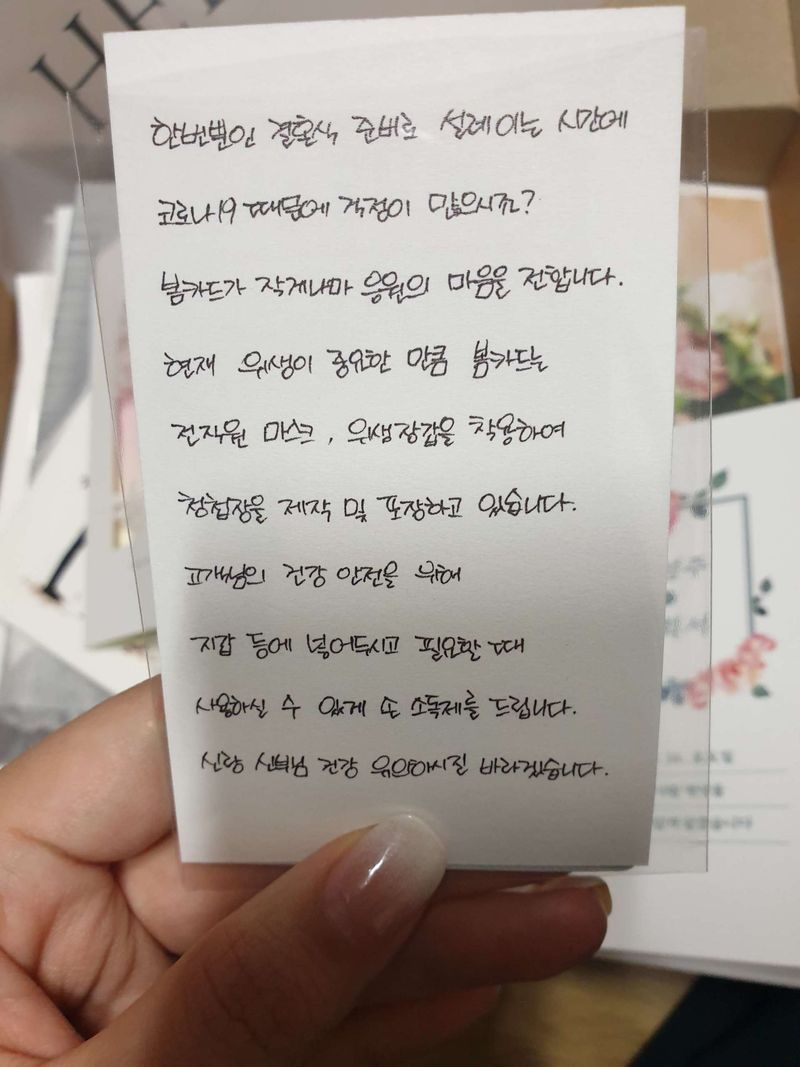 한번뿐인 결혼식 준비로 설레이는 시간에
코로나19 때문에 걱정이 많으시죠?
봄카드가 작게나마 응원의 마음을 전합니다.
현재 위생이 중요한 만큼 봄카드는
전직원 마스크, 위생장갑을 착용하여
청첩장을 제작 및 포장하고 있습니다.
고객님의 건강 안전을 위해
지갑 등에 넣어두시고 필요할 때
사용하실 수 있게 손 소독제를 드립니다.
신랑 신부님 건강 유의하시길 바라겠습니다.